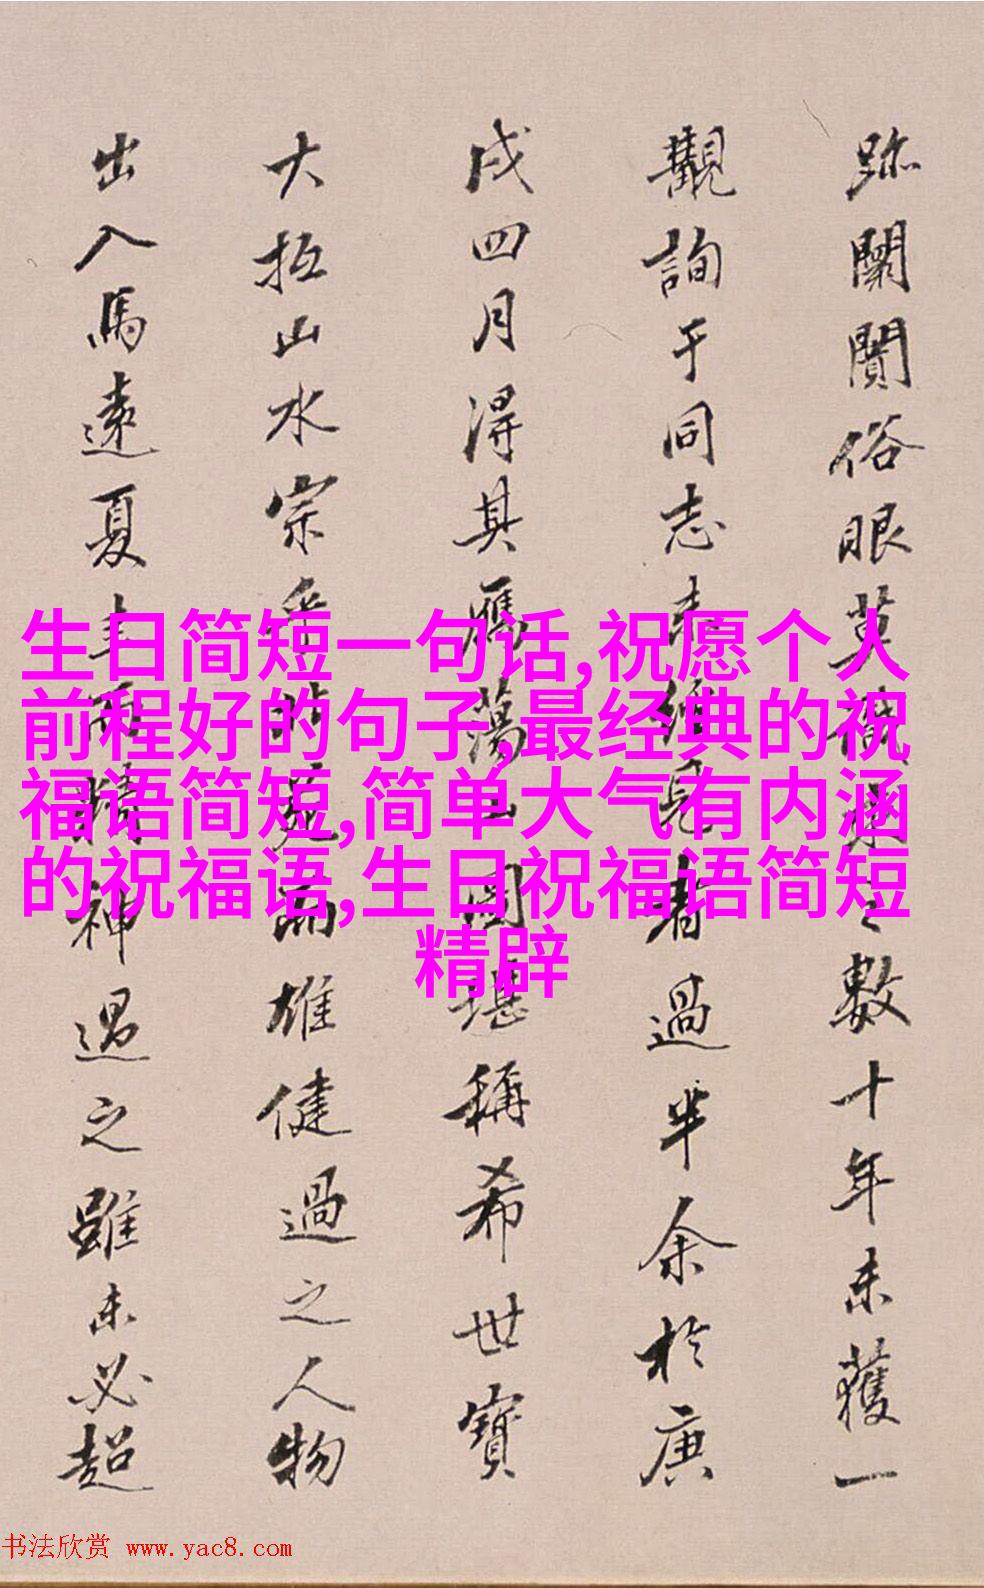 跡闤闠俗眼莫數十年未獲一
觀詢于同志未經見者過半余於庚
戌四月得其鴈蕩山圖堪稱希世寶
大抵山水宗乎苑而雄健過之人物
出入馬遠夏圭而精神過之雖未必超
生日简短一句话,祝愿个人
前程好的句子,最经典的祝
福语简短,简单大气有内涵
的祝福语,生日祝福语简短
精辟
书法欣赏 www.yac8.com